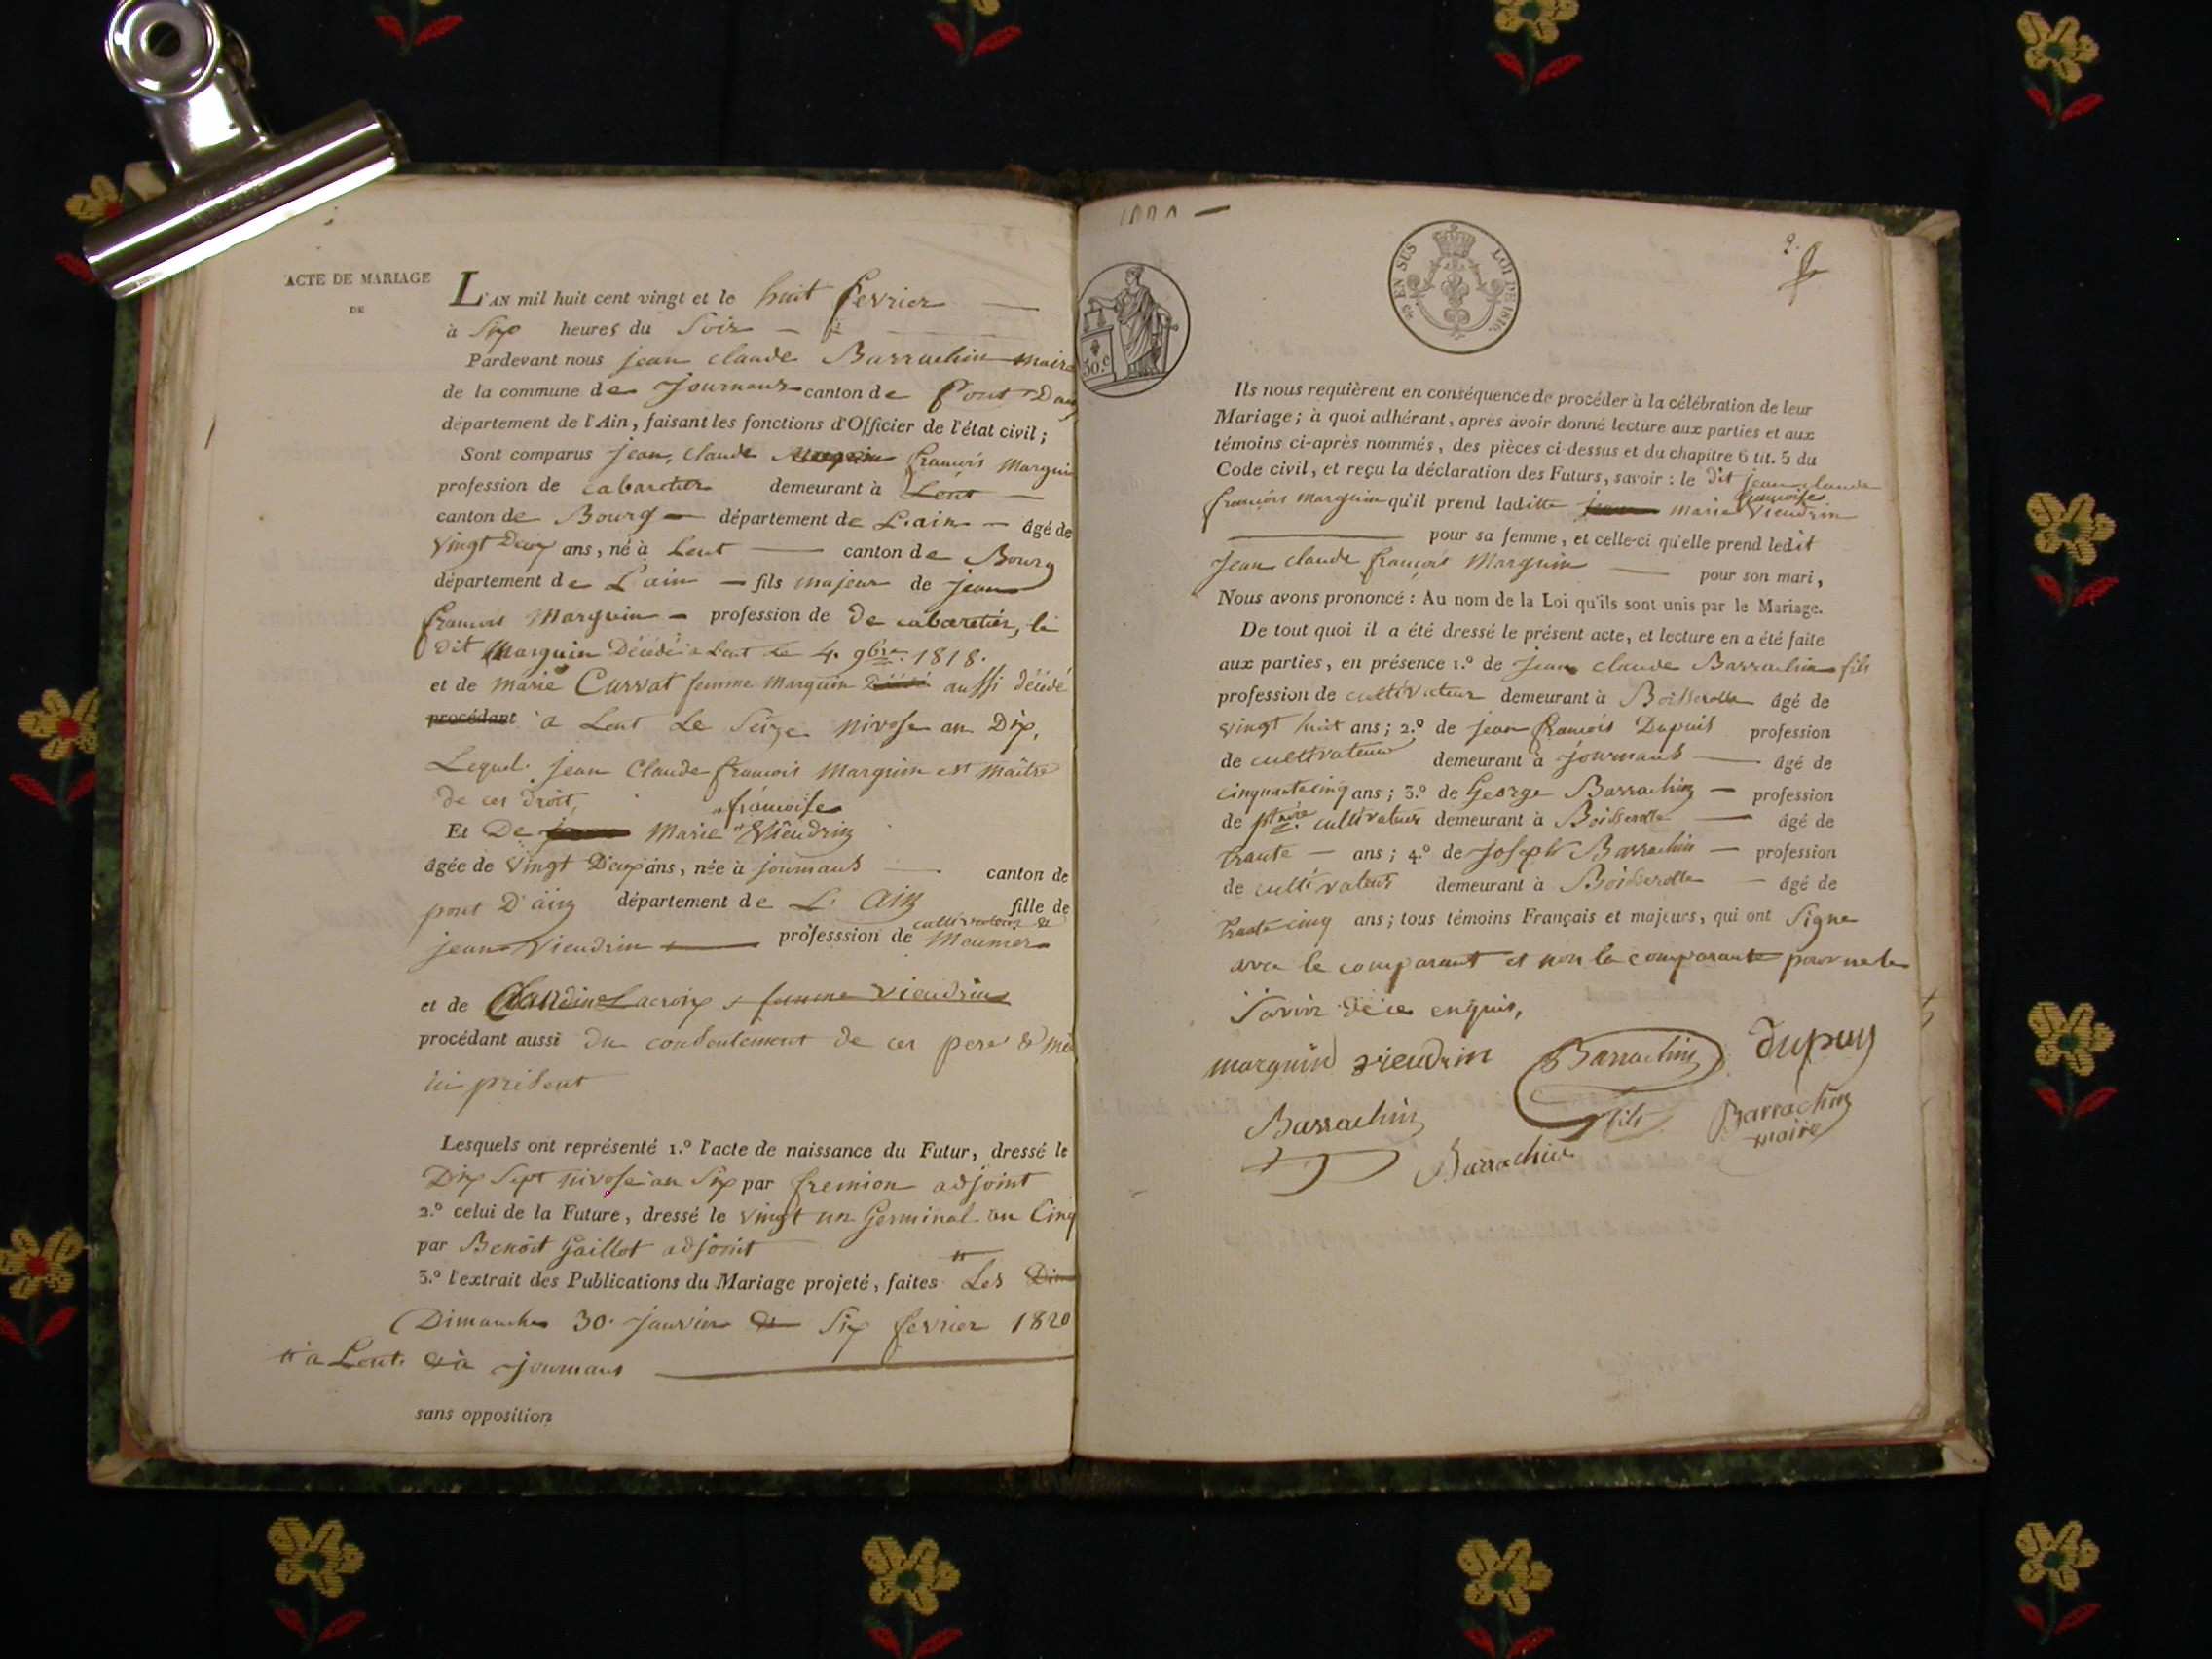 ACTE DE MARIAGE
DE
L'AN mil huit cent vingt et le huit fevrier
à Six heures du Soir
Pardevant nous jean claude Barrachin maire
de la commune de Journans canton de Pont Dain
département de l'Ain, faisant les fonctions d'Officier de l'état civil;
Sont comparus jean, claude françois Marguin
profession de cabaretier demeurant à Lent
canton de Bourg département de L'ain âgé de
vingt Deux ans, né à Lent canton de Bourg
département de L'ain fils majeur de jean
françois Marguin profession de de cabaretier, le
dit Marguin Décédé a Lent le 4. 9bre. 1818.
et de marie Curvat femme Marguin aussi décédé
procédant a Lent Le Seize nivose an Dix,
Lequel jean Claude françois Marguin est maître
de ces droit,
françoise
Et De Marie Vieudrin
âgée de vingt Deux ans, née à journans canton de
pont D'ain département de L'Ain fille de
cultivateur &
jean Vieudrin professsion de Meunier
et de Claudine Lacroix femme Vieudrin
procédant aussi du consentement de ces pere & mere
ici présent
Lesquels ont représenté 1.° l'acte de naissance du Futur, dressé le
Dix Sept nivose an Six par fremion adjoint
2.° celui de la Future, dressé le vingt un Germinal an Cinq
par Benoit Gaillot adjoint
3.° l'extrait des Publications du Mariage projeté, faites Les
Dimanches 30. janvier & Six fevrier 1820
a Lent. & à journans
sans opposition
2.
EN SUS LOI DE 1816.
50.c
Ils nous requièrent en conséquence de procéder à la célébration de leur
Mariage; à quoi adhérant, après avoir donné lecture aux parties et aux
témoins ci-après nommés, des pièces ci-dessus et du chapitre 6 tit. 5 du
Code civil, et reçu la déclaration des Futurs, savoir: le dit jean claude
françoise
françois Marguin qu'il prend laditte marie Vieudrin
pour sa femme, et celle-ci qu'elle prend ledit
Jean claude françois Marguin pour son mari,
Nous avons prononcé: Au nom de la Loi qu'ils sont unis par le Mariage.
De tout quoi il a été dressé le présent acte, et lecture en a été faite
aux parties, en présence 1.° de jean claude Barrachin fils
profession de cultivateur demeurant à Boisserolle âgé de
vingt huit ans; 2.° de jean françois Dupuis profession
de cultivateur demeurant à journans âgé de
cinquante cinq ans; 3.° de George Barrachin profession
de cultivateur demeurant à Boisserolle âgé de
trante ans; 4.° de joseph Barrachin profession
de cultivateur demeurant à Boisserolle âgé de
trante cinq ans; tous témoins Français et majeurs, qui ont Signe
avec le comparant et non la comparante pour ne le
Savoir de ce enquis,
marguin vieudrin Barrachin fils Dupuy
Barrachin Barrachin Barrachin maire